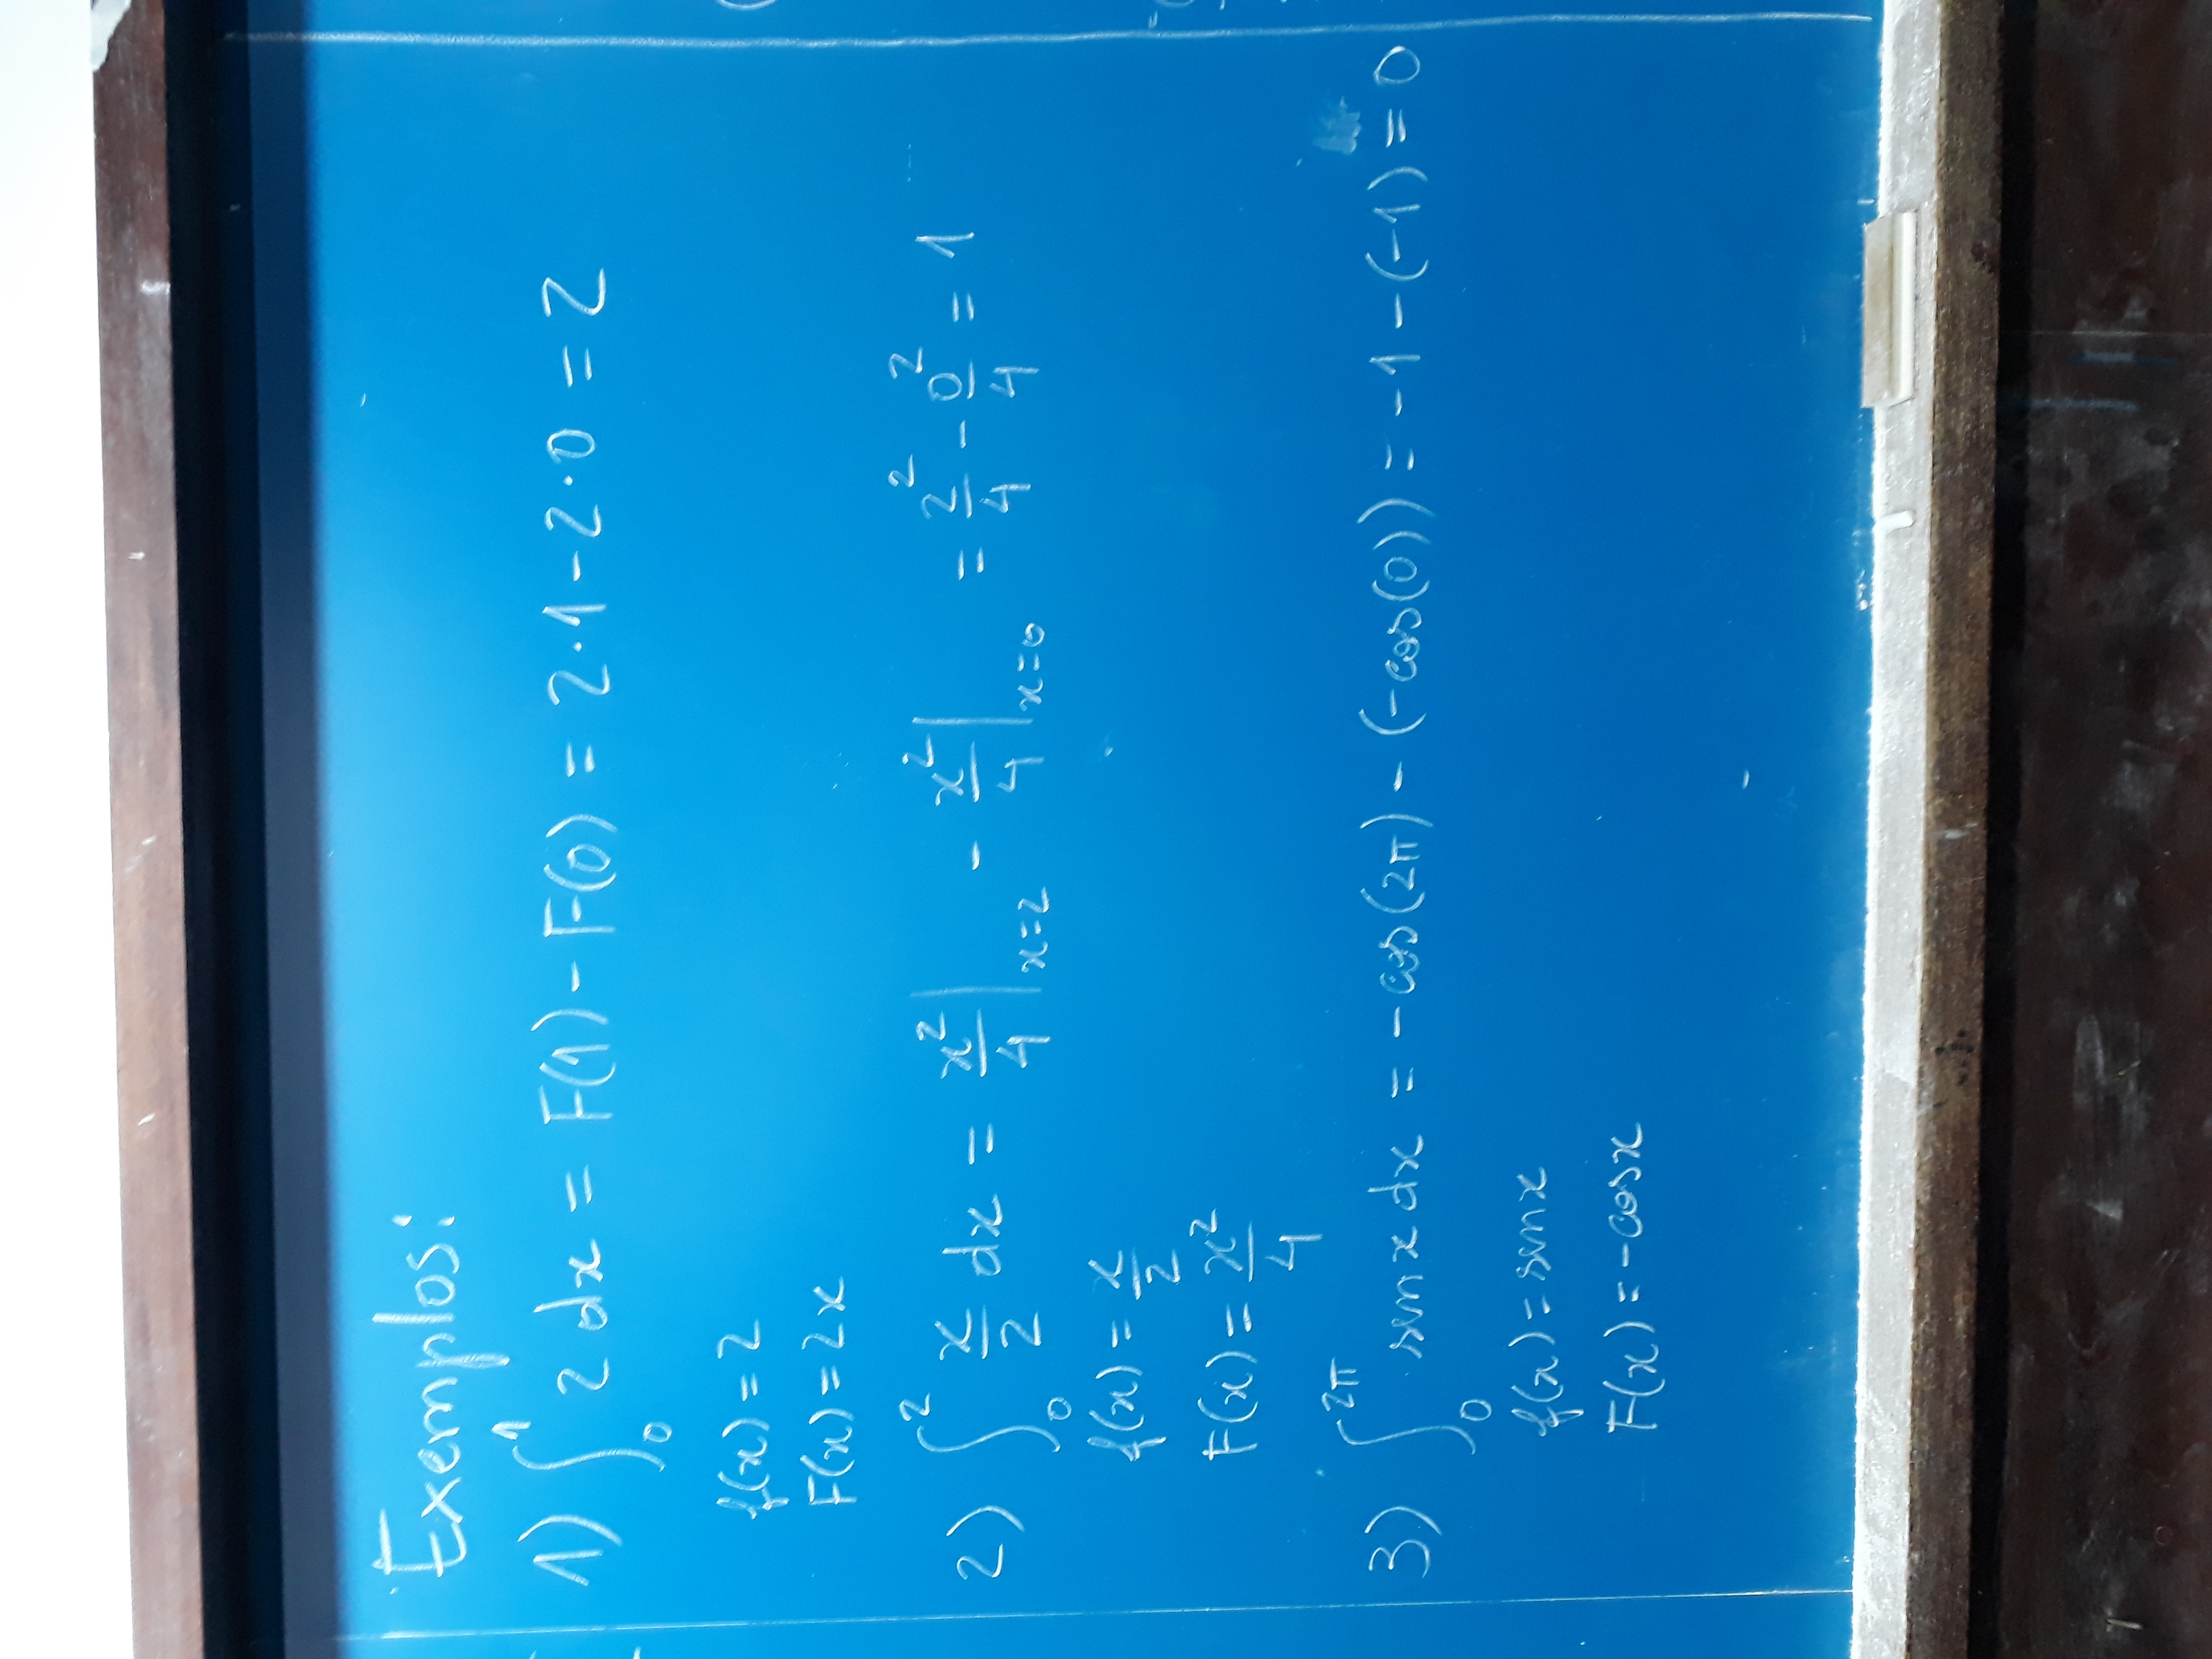 Exemplos:
1) ∫₀¹ 2 dx = F(1) - F(0) = 2·1 - 2·0 = 2
f(x) = 2
F(x) = 2x
2) ∫₀² x/2 dx = x²/4 |ₓ₌₂ - x²/4 |ₓ₌₀ = 2²/4 - 0²/4 = 1
f(x) = x/2
F(x) = x²/4
3) ∫₀^2π sen x dx = -cos(2π) - (-cos(0)) = -1 - (-1) = 0
f(x) = sen x
F(x) = -cos x